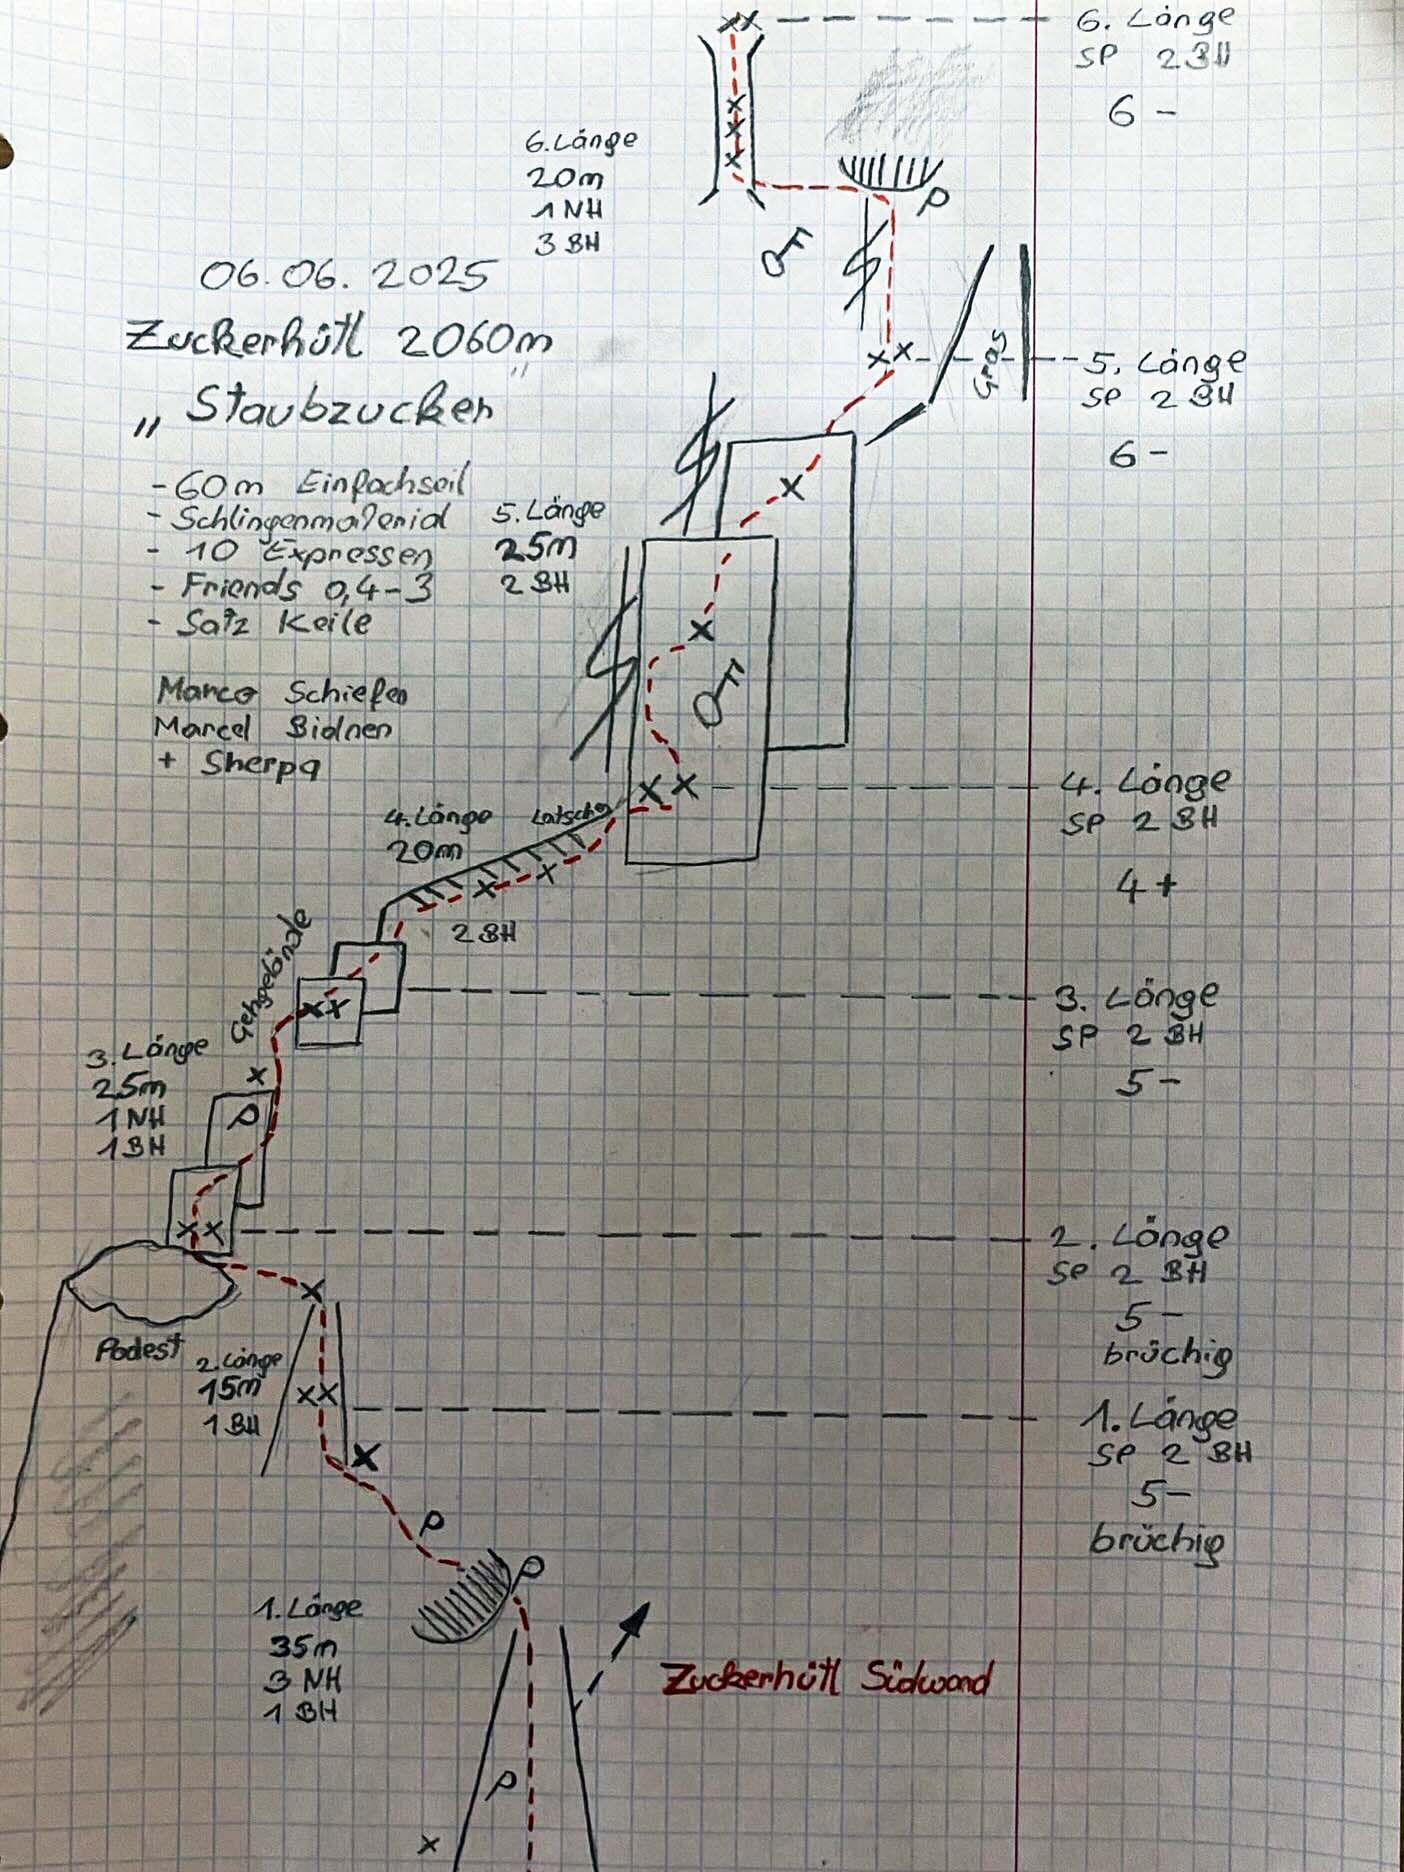 6. Länge
SP 2 BH
6 -
6. Länge
20m
1 NH
3 BH
06.06.2025
Zuckerhütl 2060m
„Staubzucker"
- 60m Einfachseil
- Schlingenmaterial
- 10 Expressen
- Friends 0,4-3
- Satz Keile
Gras
5. Länge
SP 2 BH
6 -
5. Länge
25m
2 BH
Marco
Marcel
+ Sherpa
4. Länge
SP 2 BH
4 +
4. Länge
20m
Latschen
2 BH
Gehgelände
3. Länge
SP 2 BH
5 -
3. Länge
25m
1 NH
1 BH
2. Länge
SP 2 BH
5 -
brüchig
Podest
2. Länge
15m
1 BH
1. Länge
SP 2 BH
5 -
brüchig
1. Länge
35m
3 NH
1 BH
Zuckerhütl Südwand